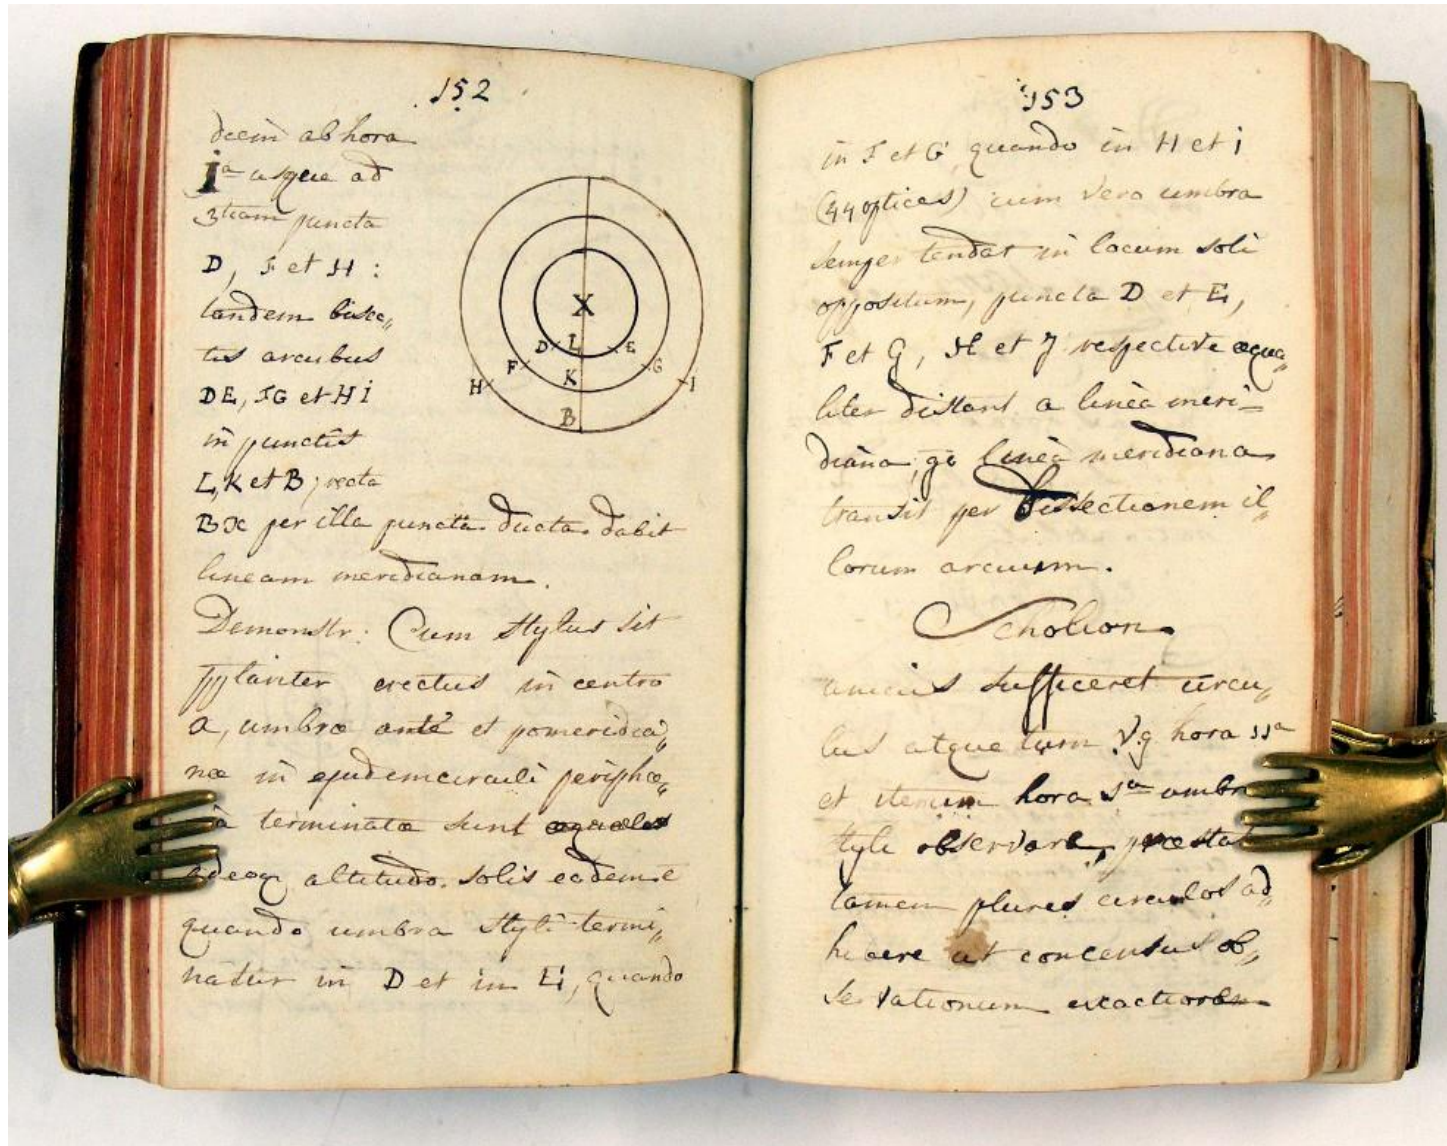 152
dein ab hora
1ª usque ad
3tiam puncta
D, F et H :
tandem bisec„
tis arcubus
DE, FG et HI
in punctis
L, K et B ; recta
BX per illa puncta ducta dabit
lineam meridianam.
Demonstr: Cum stylus sit
erectus in centro
a, umbræ ante et pomeridia„
næ in ejusdem circuli periphæ„
a terminatæ sunt æquales
adeoq altitudo solis eadem ē
quando umbra styli termi„
natur in D et in E, quando
X
D L E
F K G
H B I
153
in F et G quando in H et i
(44 optices) cum vero umbra
semper tendat in locum soli
oppositum, puncta D et E,
F et G, H et J respective æqua„
liter distant a linea meri-
diana, gō linea meridiana
transit per bissectionem il„
lorum arcuum.
Scholion
unicus sufficeret circu„
lus atque tum v.g. hora 11ª
et iterum hora 1ª umbr
styli observare, præstat
tamen plures circulos ad„
hibere ut concensus ob„
servationum exactiorem